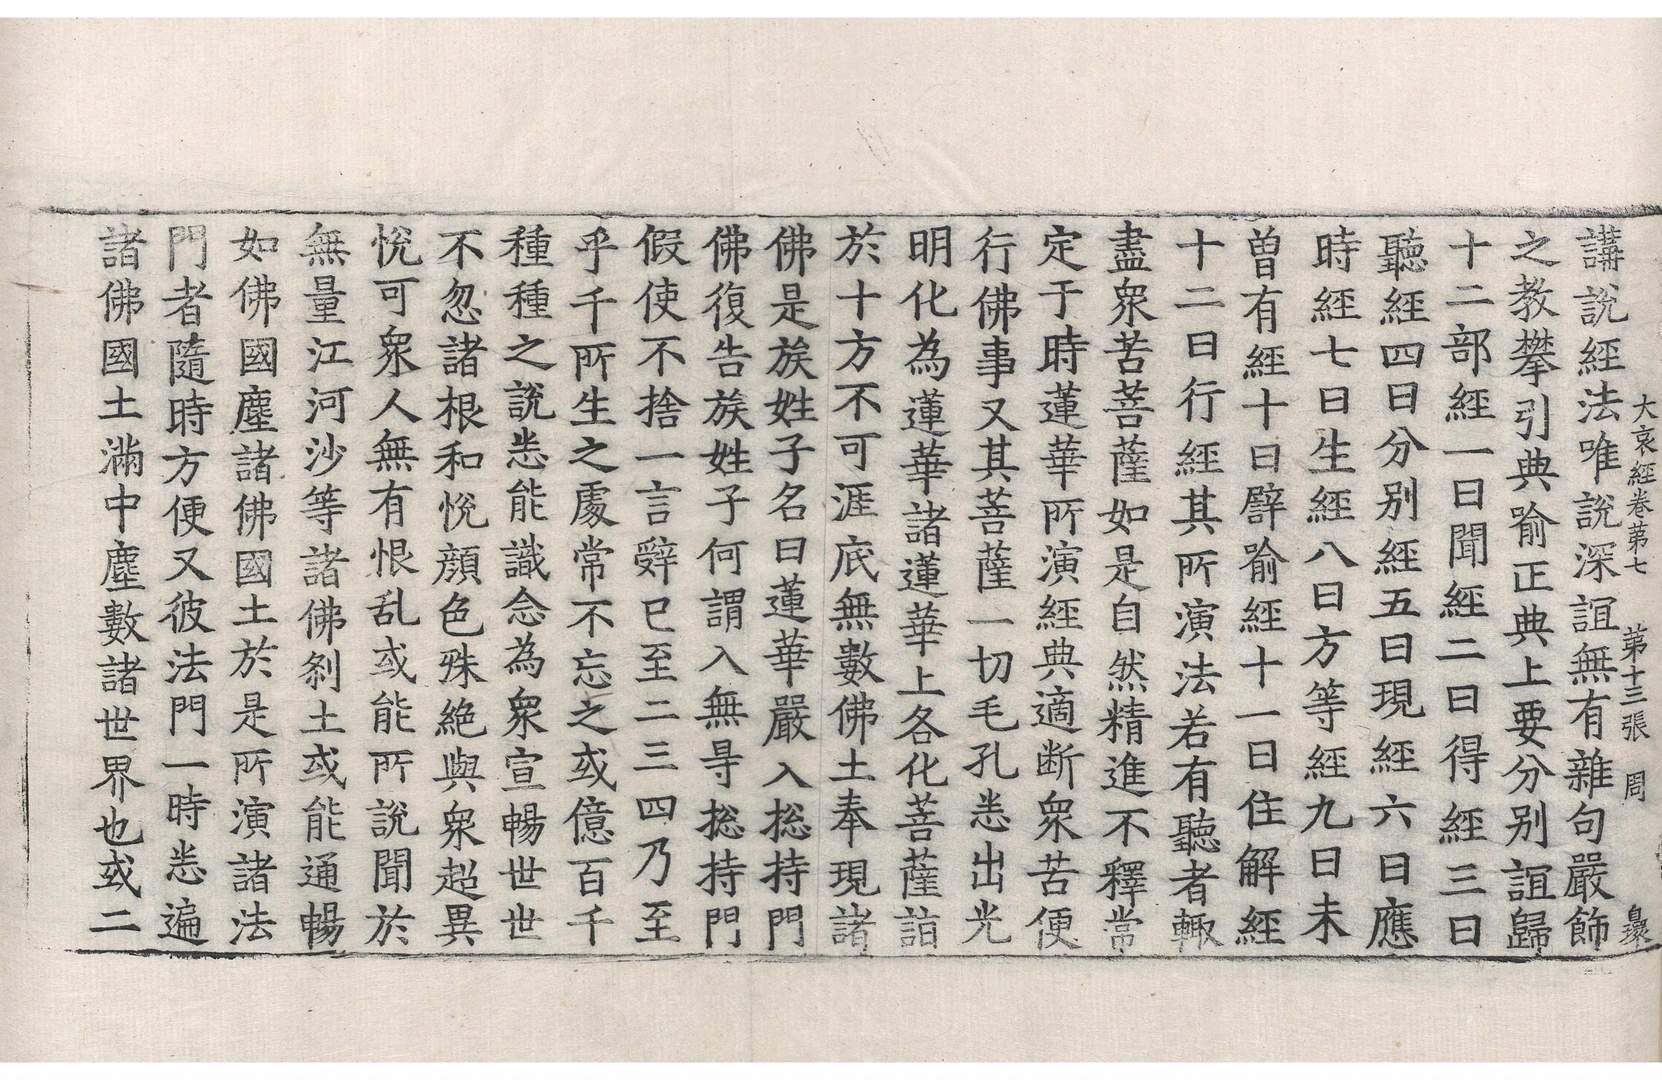 大哀經卷苐七 苐十三張 周
講說經法唯說深誼無有雜句嚴飾
之教攀引典喻正典上要分別誼歸
十二部經一曰聞經二曰得經三曰
聽經四曰分別經五曰現經六曰應
時經七曰生經八曰方等經九曰未
曾有經十曰譬喻經十一曰住解經
十二曰行經其所演法若有聽者輙
盡衆苦菩薩如是自然精進不釋常
定于時蓮華所演經典適斷衆苦便
行佛事又其菩薩一切毛孔悉出光
明化為蓮華諸蓮華上各化菩薩詣
於十方不可涯底無數佛土奉現諸
佛是族姓子名曰蓮華嚴入揔持門
佛復告族姓子何謂入無㝵揔持門
假使不捨一言辤已至二三四乃至
乎千所生之處常不忘之或億百千
種種之說悉能識念為衆宣暢世世
不忽諸根和悅顔色殊絶與衆超異
悅可衆人無有恨乱或能所說聞於
無量江河沙等諸佛剎土或能通暢
如佛國塵諸佛國土於是所演諸法
門者隨時方便又彼法門一時悉遍
諸佛國土滿中塵數諸世界也或二